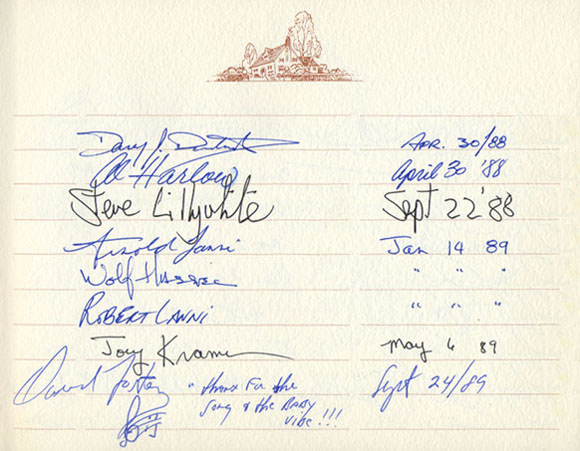 Apr. 30/88
Al Harlow April 30 '88
Steve Lillywhite Sept 22 '88
Arnold Lanni Jan 14 89
Wolf Hassel " " "
Robert Lanni " " "
Joey Kramer May 6 89
David Foster "thanx for the Sept 24/89
song & the Baby
vibe!!!